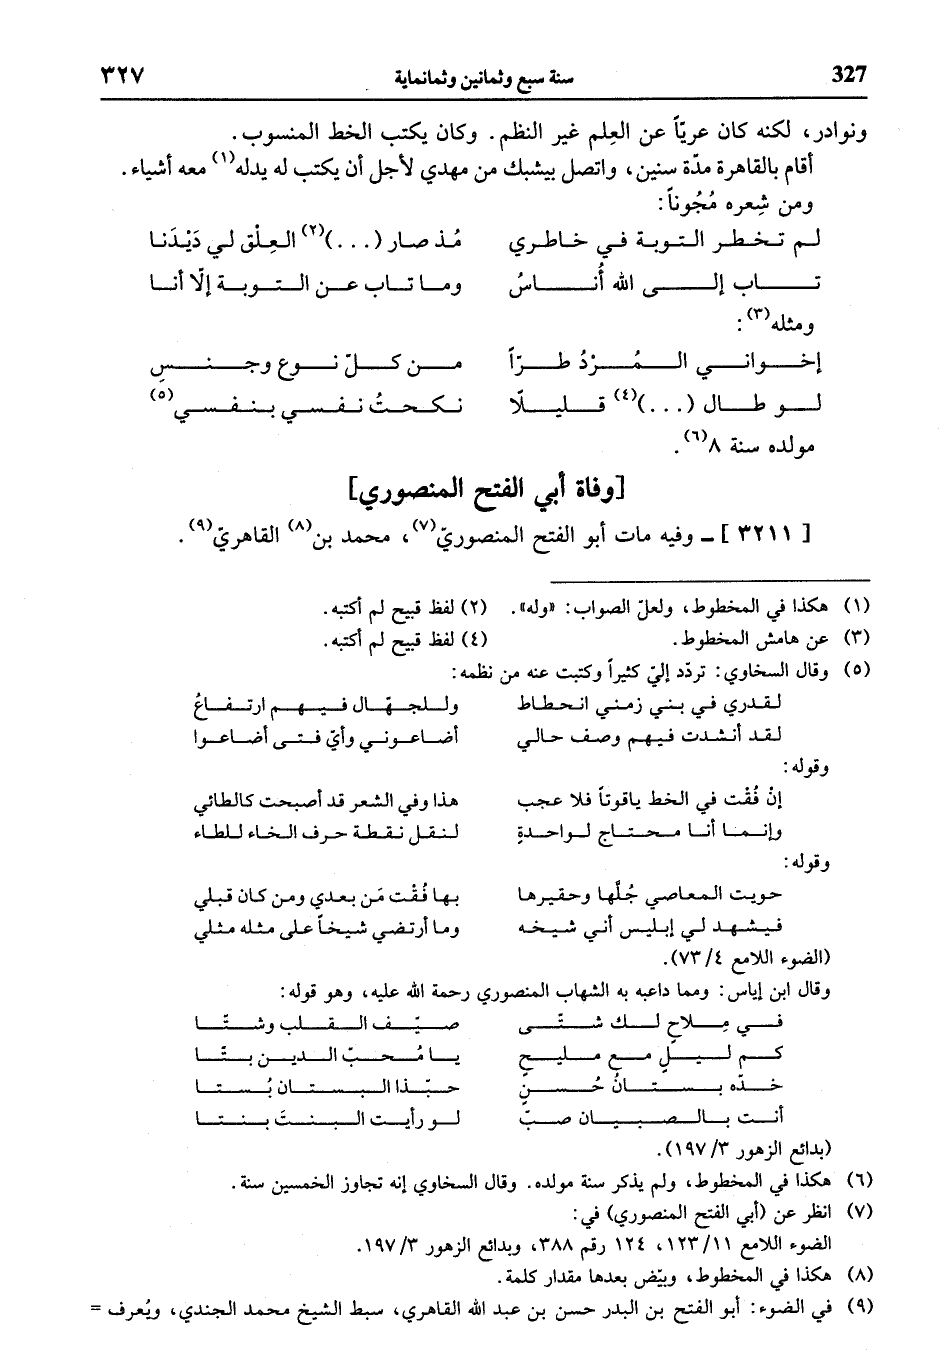 327 سنة سبع وثمانين وثمانماية ٣٢٧
ونوادر، لكنه كان عريّاً عن العِلم غير النظم. وكان يكتب الخط المنسوب.
أقام بالقاهرة مدّة سنين، واتصل بيشبك من مهدي لأجل أن يكتب له يدله(١) معه أشياء.
ومن شِعره مُجُوناً:
لم تخطر التوبة في خاطري مُذ صار (...)(٢) العِلْق لي دَيْدَنا
تاب إلى الله أُناسُ وما تاب عن التوبة إلّا أنا
ومثله(٣):
إخواني المُرْدُ طرّاً من كلّ نوع وجنسِ
لو طال (...)(٤) قليلًا نكحتُ نفسي بنفسي(٥)
مولده سنة ٨(٦).
[وفاة أبي الفتح المنصوري]
[٣٢١١] ــ وفيه مات أبو الفتح المنصوريّ(٧)، محمد بن(٨) القاهريّ(٩).
(١) هكذا في المخطوط، ولعلّ الصواب: «وله». (٢) لفظ قبيح لم أكتبه.
(٣) عن هامش المخطوط. (٤) لفظ قبيح لم أكتبه.
(٥) وقال السخاوي: تردّد إليّ كثيراً وكتبت عنه من نظمه:
لقدري في بني زمني انحطاط وللجهّال فيهم ارتفاعُ
لقد أنشدت فيهم وصف حالي أضاعوني وأيّ فتى أضاعوا
وقوله:
إنْ فُقْت في الخط ياقوتاً فلا عجب هذا وفي الشعر قد أصبحت كالطائي
وإنما أنا محتاج لواحدةٍ لنقل نقطة حرف الخاء للطاء
وقوله:
حويت المعاصي جُلَّها وحقيرها بها فُقْت مَن بعدي ومن كان قبلي
فيشهد لي إبليس أني شيخه وما أرتضي شيخاً على مثله مثلي
(الضوء اللامع ٧٣/٤).
وقال ابن إياس: ومما داعبه به الشهاب المنصوري رحمة الله عليه، وهو قوله:
في مِلاحٍ لك شتّى صيّف القلب وشتّا
كم ليبلٍ مع مليحٍ يا مُحبّ الدين بتَّا
خدّه بستانُ حُسنٍ حبّذا البستان بُستا
أنت بالصبيان صبّ لو رأيت البنتَ بنتا
(بدائع الزهور ١٩٧/٣).
(٦) هكذا في المخطوط، ولم يذكر سنة مولده. وقال السخاوي إنه تجاوز الخمسين سنة.
(٧) انظر عن (أبي الفتح المنصوري) في:
الضوء اللامع ١٢٣/١١، ١٢٤ رقم ٣٨٨، وبدائع الزهور ١٩٧/٣.
(٨) هكذا في المخطوط، وبيّض بعدها مقدار كلمة.
(٩) في الضوء: أبو الفتح بن البدر حسن بن عبد الله القاهري، سبط الشيخ محمد الجندي، ويُعرف =